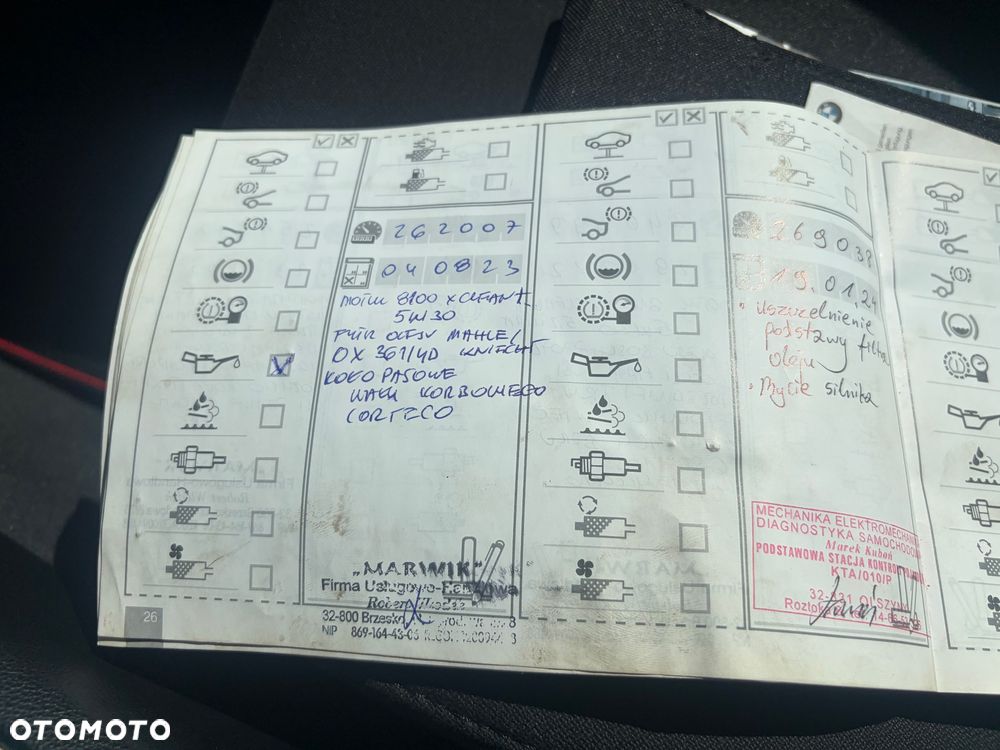 262007
040823
MOTUL 8100 XCLEAN+
5W30
FILTR OLEJU MAHLE/
OX 361/4D KNECHT
KOŁO PASOWE
WAŁU KORBOWEGO
CORTECO
"MARWIK"
Firma Usługowo-Handlowa
Robert
32-800 Brzesko
NIP 869-164-43-06
26
269038
19.01.24
• Uszczelnienie
podstawy filtra
oleju
• Mycie silnika
MECHANIKA ELEKTROMECHANIKA
DIAGNOSTYKA SAMOCHODOWA
Marek Kuboń
PODSTAWOWA STACJA KONTROLI
KTA/010/P
32-831 OLSZYNY
OTOMOTO